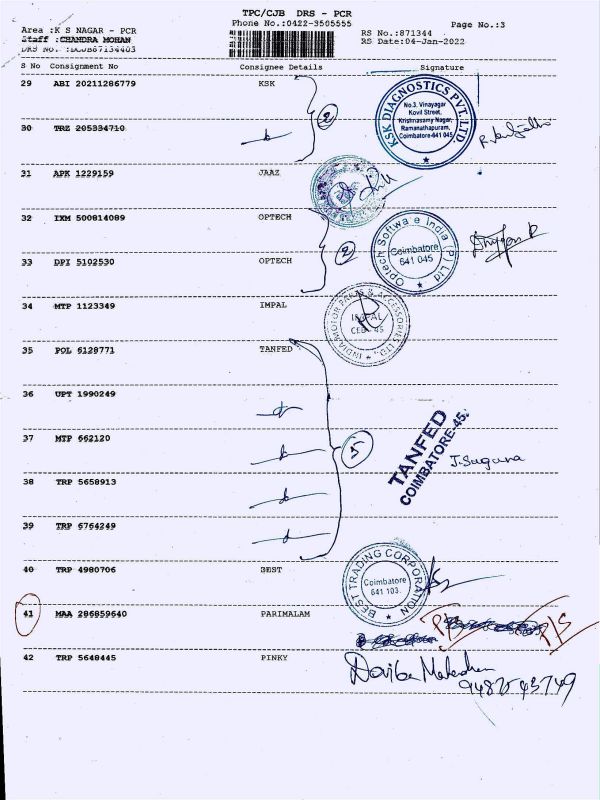 TPC/CJB DRS - PCR
Area :K S NAGAR - PCR Phone No.:0422-3505555 Page No.:3
Staff :CHANDRA MOHAN RS No.:871344
DRS No. :DCJB87134403 RS Date:04-Jan-2022
S No Consignment No Consignee Details Signature
29 ABI 20211286779 KSK
KSK DIAGNOSTICS PVT. LTD.
No.3. Vinayagar
Kovil Street,
Krishnasamy Nagar,
Ramanathapuram,
Coimbatore-641 045
2
30 TRZ 205334710
31 APK 1229159 JAAZ
32 IXM 500814089 OPTECH
Optech Software India (P) Ltd
Coimbatore
641 045
2
33 DPI 5102530 OPTECH
34 MTP 1123349 IMPAL
INDIA MOTOR PARTS & ACCESSORIES LTD.,
35 POL 6129771 TANFED
36 UPT 1990249
37 MTP 662120
5
TANFED
COIMBATORE-45.
J. Suguna
38 TRP 5658913
39 TRP 6764249
40 TRP 4980706 BEST
BEST TRADING CORPORATION
Coimbatore
641 103.
41 MAA 286859640 PARIMALAM
P/S P/S
42 TRP 5648445 PINKY